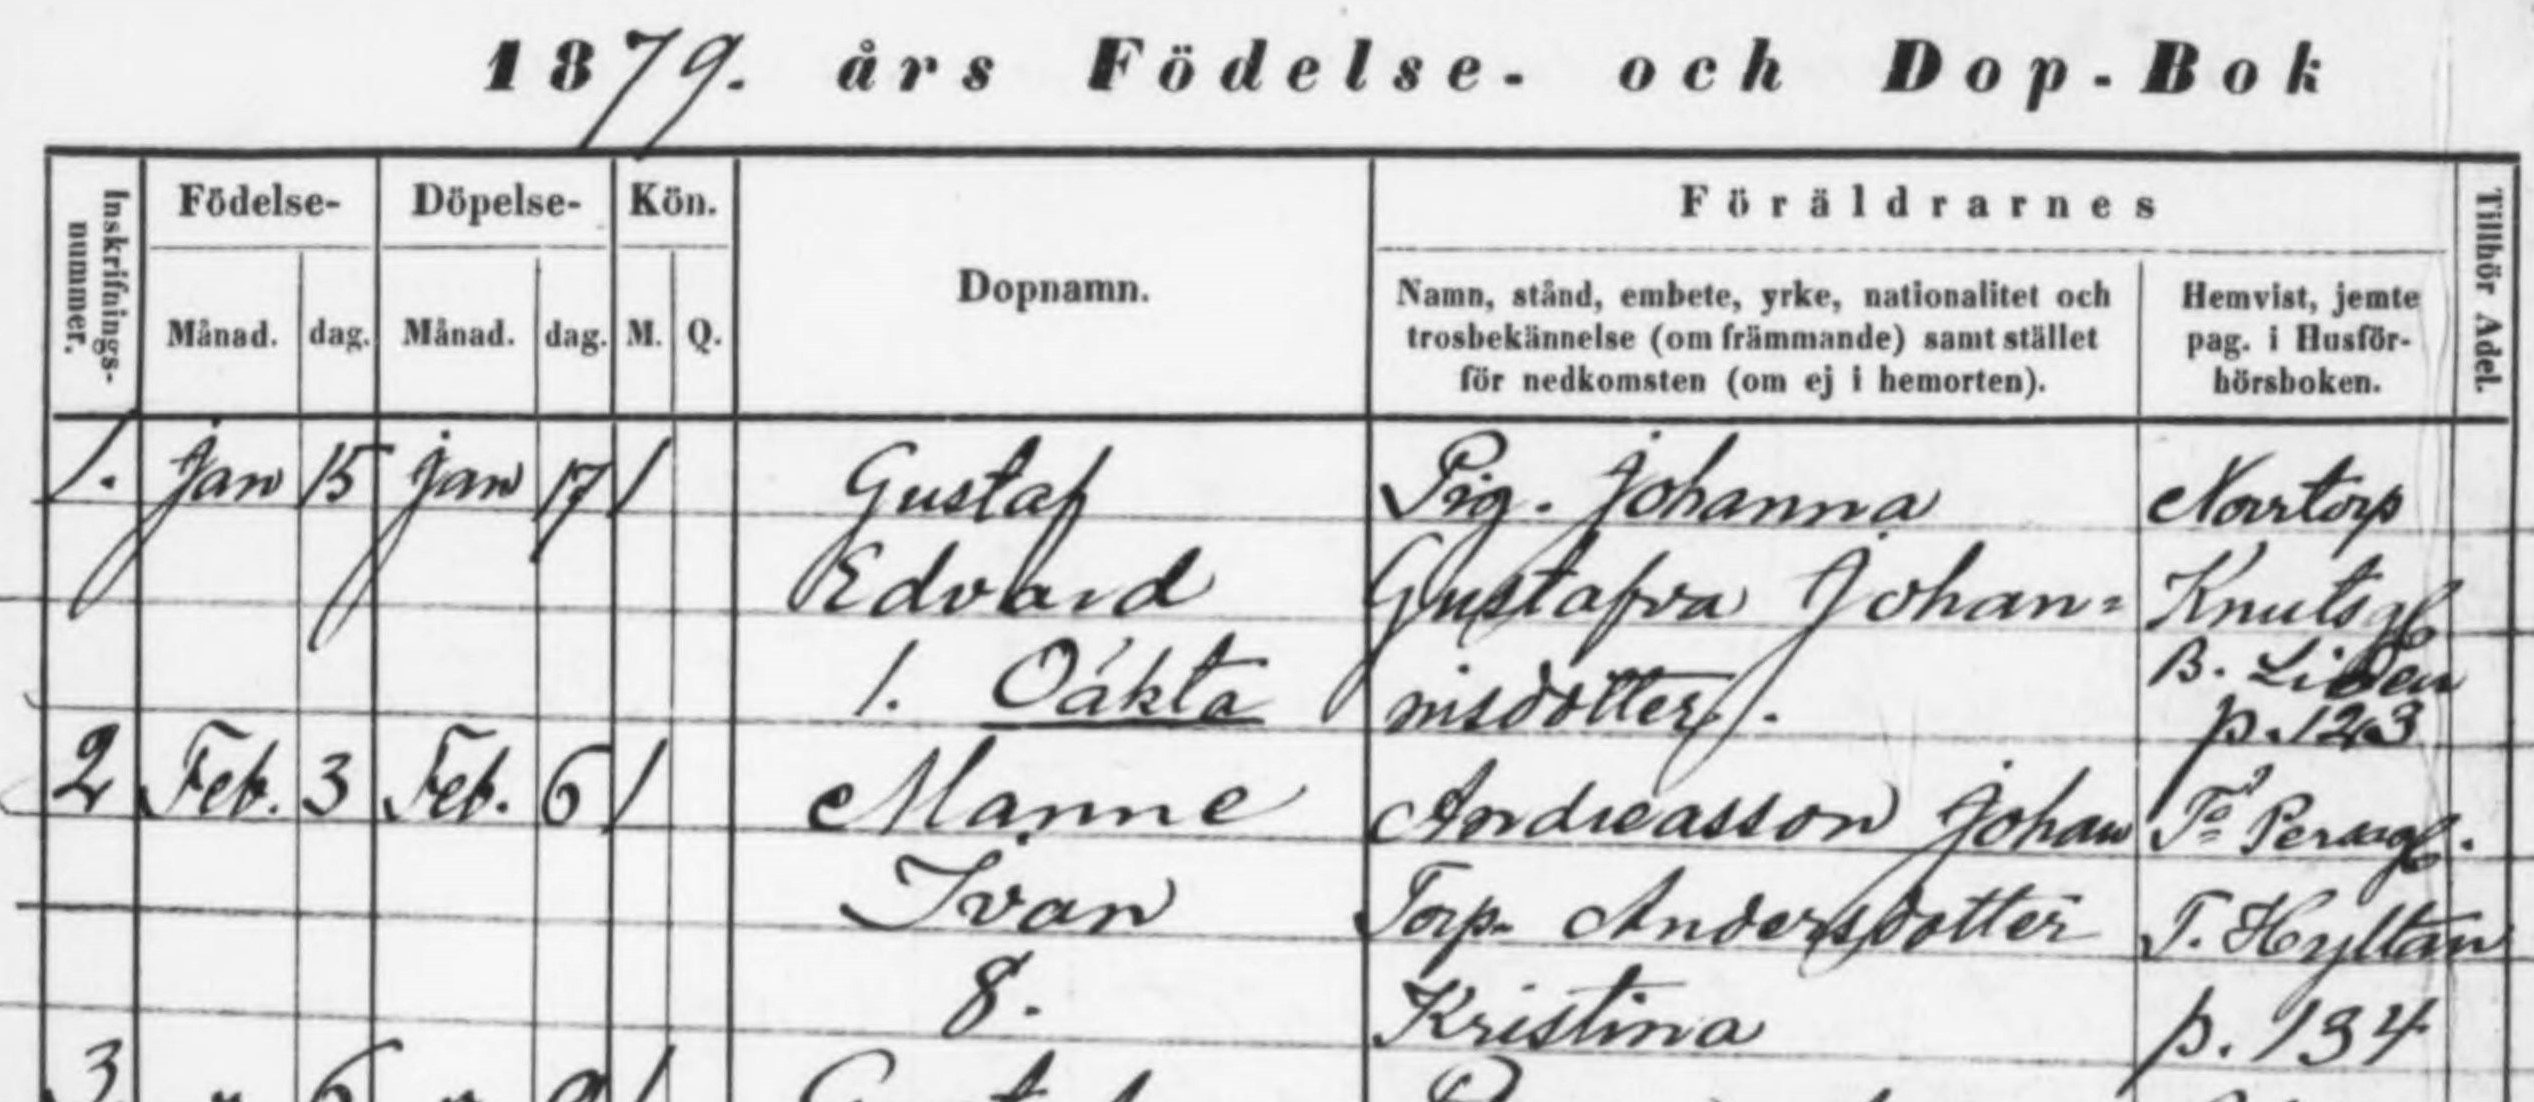 1879. års Födelse- och Dop-Bok
Inskrifnings-
nummer.
Födelse-
Månad. dag.
Döpelse-
Månad. dag.
Kön.
M. Q.
Dopnamn.
Föräldrarnes
Namn, stånd, embete, yrke, nationalitet och
trosbekännelse (om främmande) samt stället
för nedkomsten (om ej i hemorten).
Hemvist, jemte
pag. i Husför-
hörsboken.
Tillhör Adel.
1. Jan 15 Jan 17 1 Gustaf Pig. Johanna Norrtorp
Edvard Gustafva Johan= Knutsg
1. Oäkta nisdotter. B. Liden
p. 123
2 Feb. 3 Feb. 6 1 Manne Andreasson Johan
Ivan Torp. Andersdotter T. Hyltan
8. Kristina p. 134
3 " 6 " 9 1